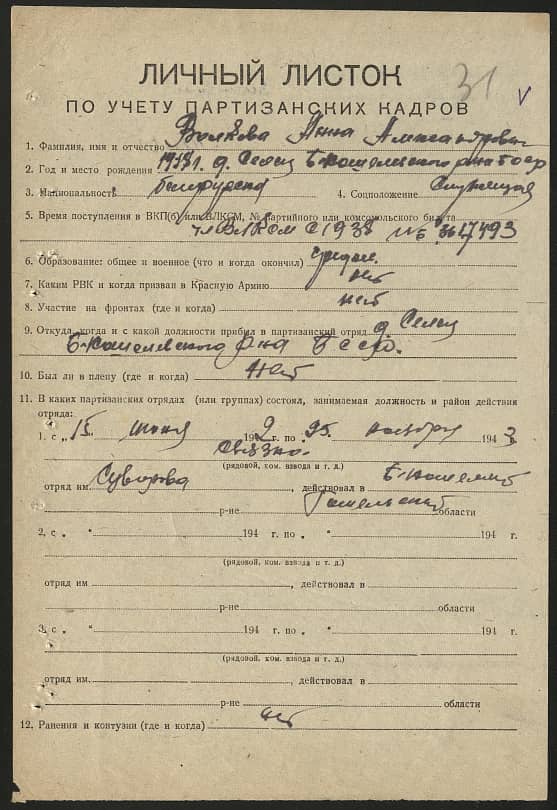 31 v
ЛИЧНЫЙ ЛИСТОК
ПО УЧЕТУ ПАРТИЗАНСКИХ КАДРОВ
1. Фамилия, имя и отчество Волкова Анна Александровн
2. Год и место рождения д. Селец Б-Кошелевского р-на БССР
3. Национальность белоруска 4. Соцположение Служащая
5. Время поступления в ВКП(б) или ВЛКСМ, № партийного или комсомольского билета
чл ВЛКСМ с 1938 № Б.
6. Образование: общее и военное (что и когда окончил) средн.
7. Каким РВК и когда призван в Красную Армию нет
8. Участие на фронтах (где и когда) нет
9. Откуда, когда и с какой должности прибыл в партизанский отряд д. Селец
Б-Кошелевского р-на БССР.
10. Был ли в плену (где и когда) нет
11. В каких партизанских отрядах (или группах) состоял, занимаемая должность и район действия
отряда:
1. с „15" июня 1942 г. по „25" ноября 1943
связн.
(рядовой, ком. взвода и т. д.)
отряд им. Суворова, действовал в Б-Кошелев
р-не Гомельской области
2. с „ " 194 г. по „ " 194 г.
(рядовой, ком. взвода и т. д.)
отряд им , действовал в
р-не области
3. с „ " 194 г. по „ " 194 г.
(рядовой, ком. взвода и т. д.)
отряд им. , действовал в
р-не области
12. Ранения и контузии (где и когда) нет